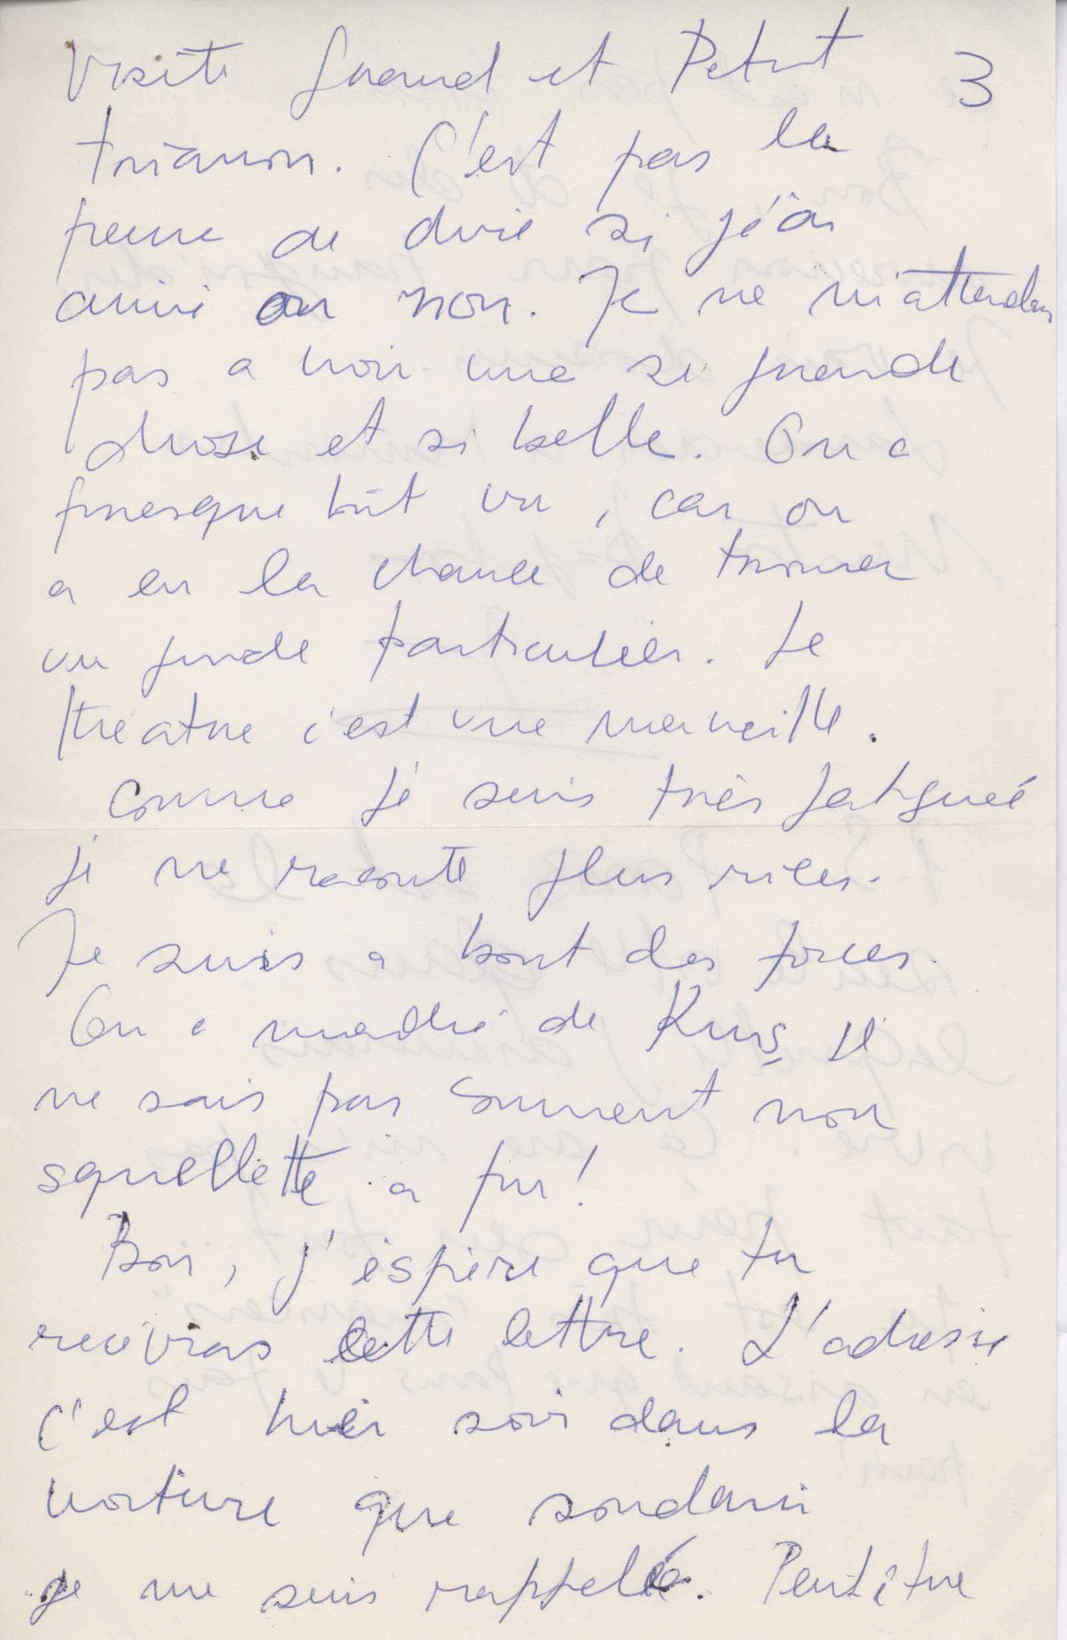 Visite Grand et Petit 3
trianon. C'est pas la
peine de dire si j'ai
aimé ou non. Je ne m'attendais
pas a voir une si grande
chose et si belle. On a
presque tût vu, car on
a eu la chance de trouver
un guide particulier. Le
théatre c'est une merveille.
Comme je suis très fatigueé
je ne raconte plus rien.
Je suis a bout des forces.
On a marché de
ne sais pas comment mon
squellette a pu!
Bon, j'éspère que tu
recevras cette lettre. L'adresse
c'est hier soir dans la
voiture que soudain
je me suis rappelé. Peut être